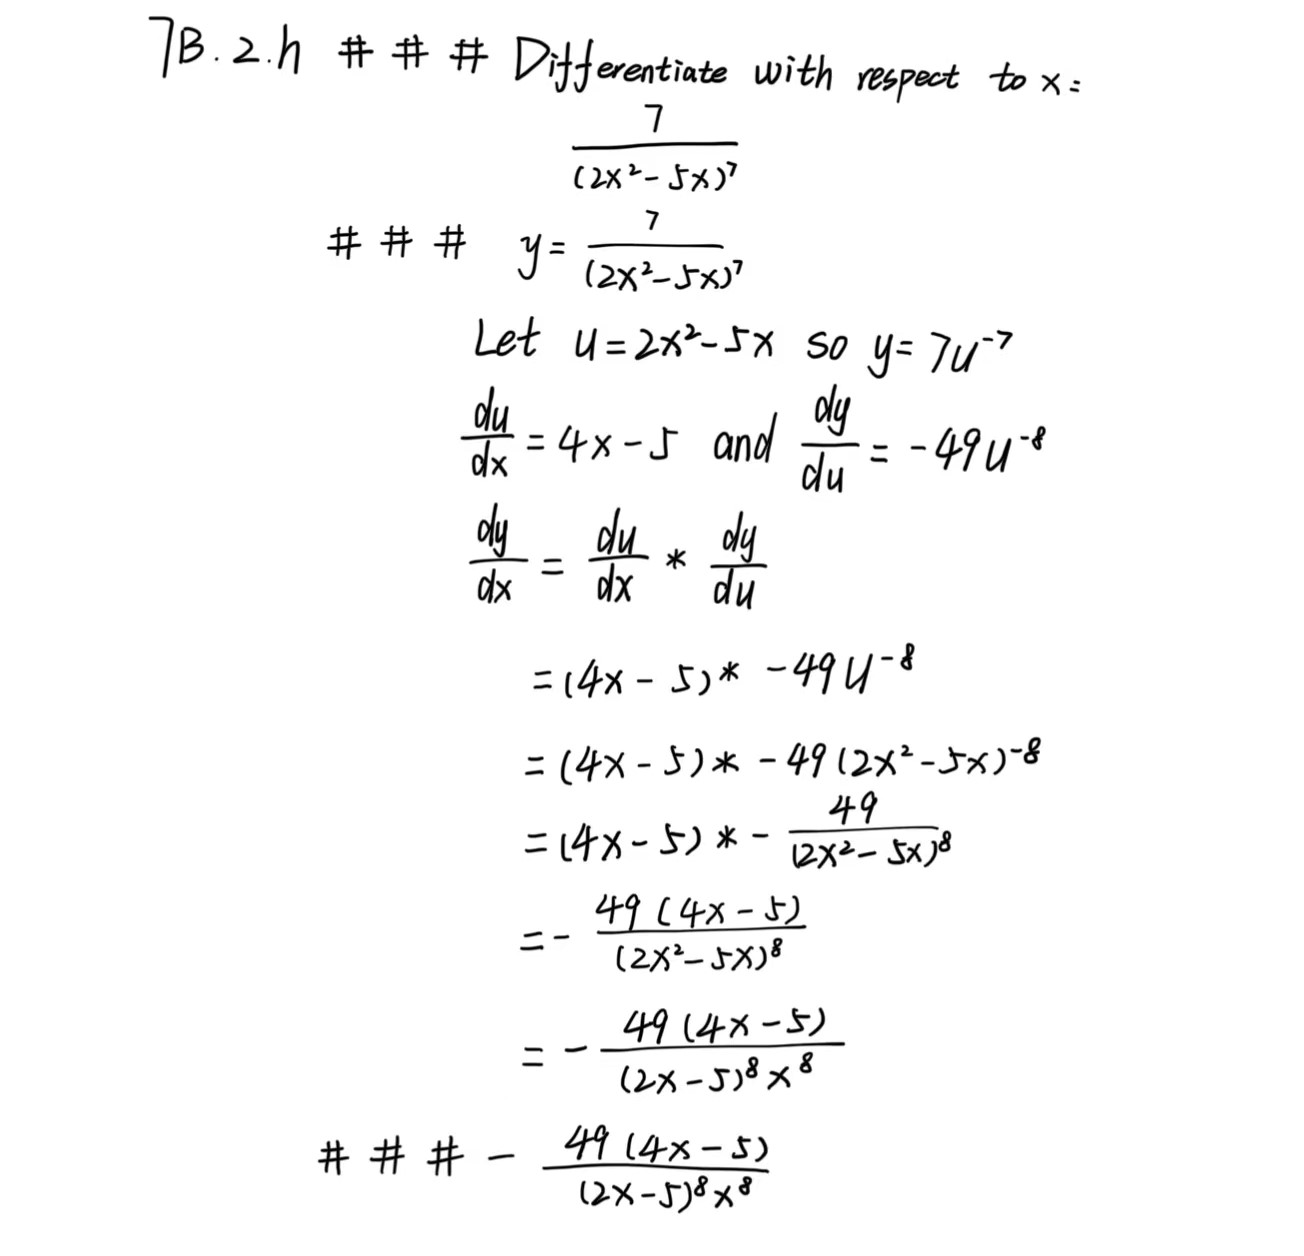 7B.2.h # # # Differentiate with respect to x:
\frac{7}{(2x^2-5x)^7}
# # # y=\frac{7}{(2x^2-5x)^7}
Let u=2x^2-5x so y=7u^{-7}
\frac{du}{dx}=4x-5 and \frac{dy}{du}=-49u^{-8}
\frac{dy}{dx}=\frac{du}{dx}*\frac{dy}{du}
=(4x-5)*-49u^{-8}
=(4x-5)*-49(2x^2-5x)^{-8}
=(4x-5)*-\frac{49}{(2x^2-5x)^8}
=-\frac{49(4x-5)}{(2x^2-5x)^8}
=-\frac{49(4x-5)}{(2x-5)^8x^8}
# # # -\frac{49(4x-5)}{(2x-5)^8x^8}